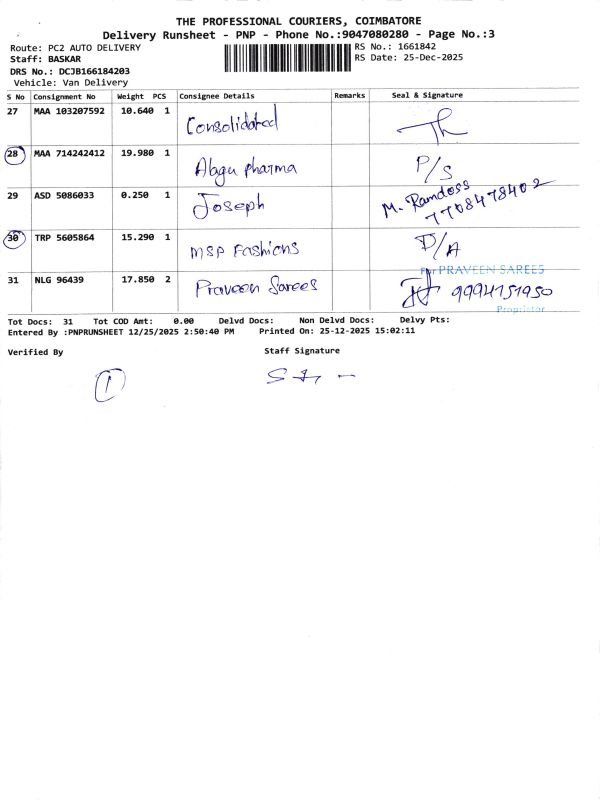 THE PROFESSIONAL COURIERS, COIMBATORE
Delivery Runsheet - PNP - Phone No.:9047080280 - Page No.:3
Route: PC2 AUTO DELIVERY RS No.: 1661842
Staff: BASKAR RS Date: 25-Dec-2025
DRS No.: DCJB166184203
Vehicle: Van Delivery
S No Consignment No Weight PCS Consignee Details Remarks Seal & Signature
27 MAA 103207592 10.640 1 Consolidated
28 MAA 714242412 19.980 1 Alagu pharma P/S
29 ASD 5086033 0.250 1 Joseph M. Ramdoss
7708478402
30 TRP 5605864 15.290 1 MSP Fashions D/A
For PRAVEEN SAREES
31 NLG 96439 17.850 2 Praveen Sarees 9994151950
Proprietor
Tot Docs: 31 Tot COD Amt: 0.00 Delvd Docs: Non Delvd Docs: Delvy Pts:
Entered By :PNPRUNSHEET 12/25/2025 2:50:40 PM Printed On: 25-12-2025 15:02:11
Verified By Staff Signature
1